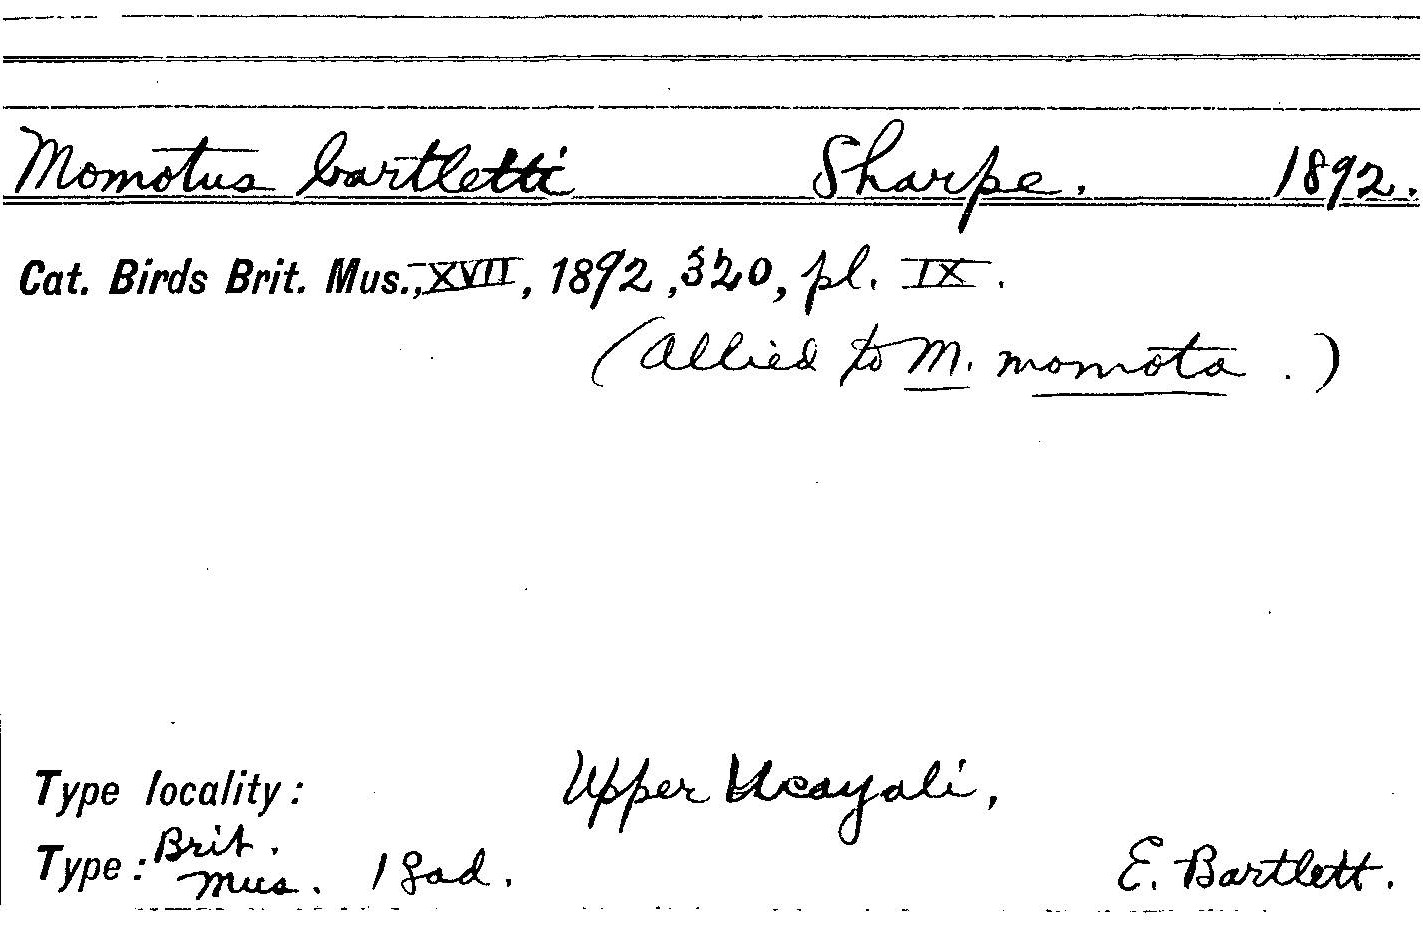 Momotus bartletti Sharpe. 1892.
Cat. Birds Brit. Mus., XVII, 1892, 320, pl. IX.
(allied to M. momota.)
Type locality: Upper Ucayali,
Type: Brit. Mus. 1 ad. E. Bartlett.